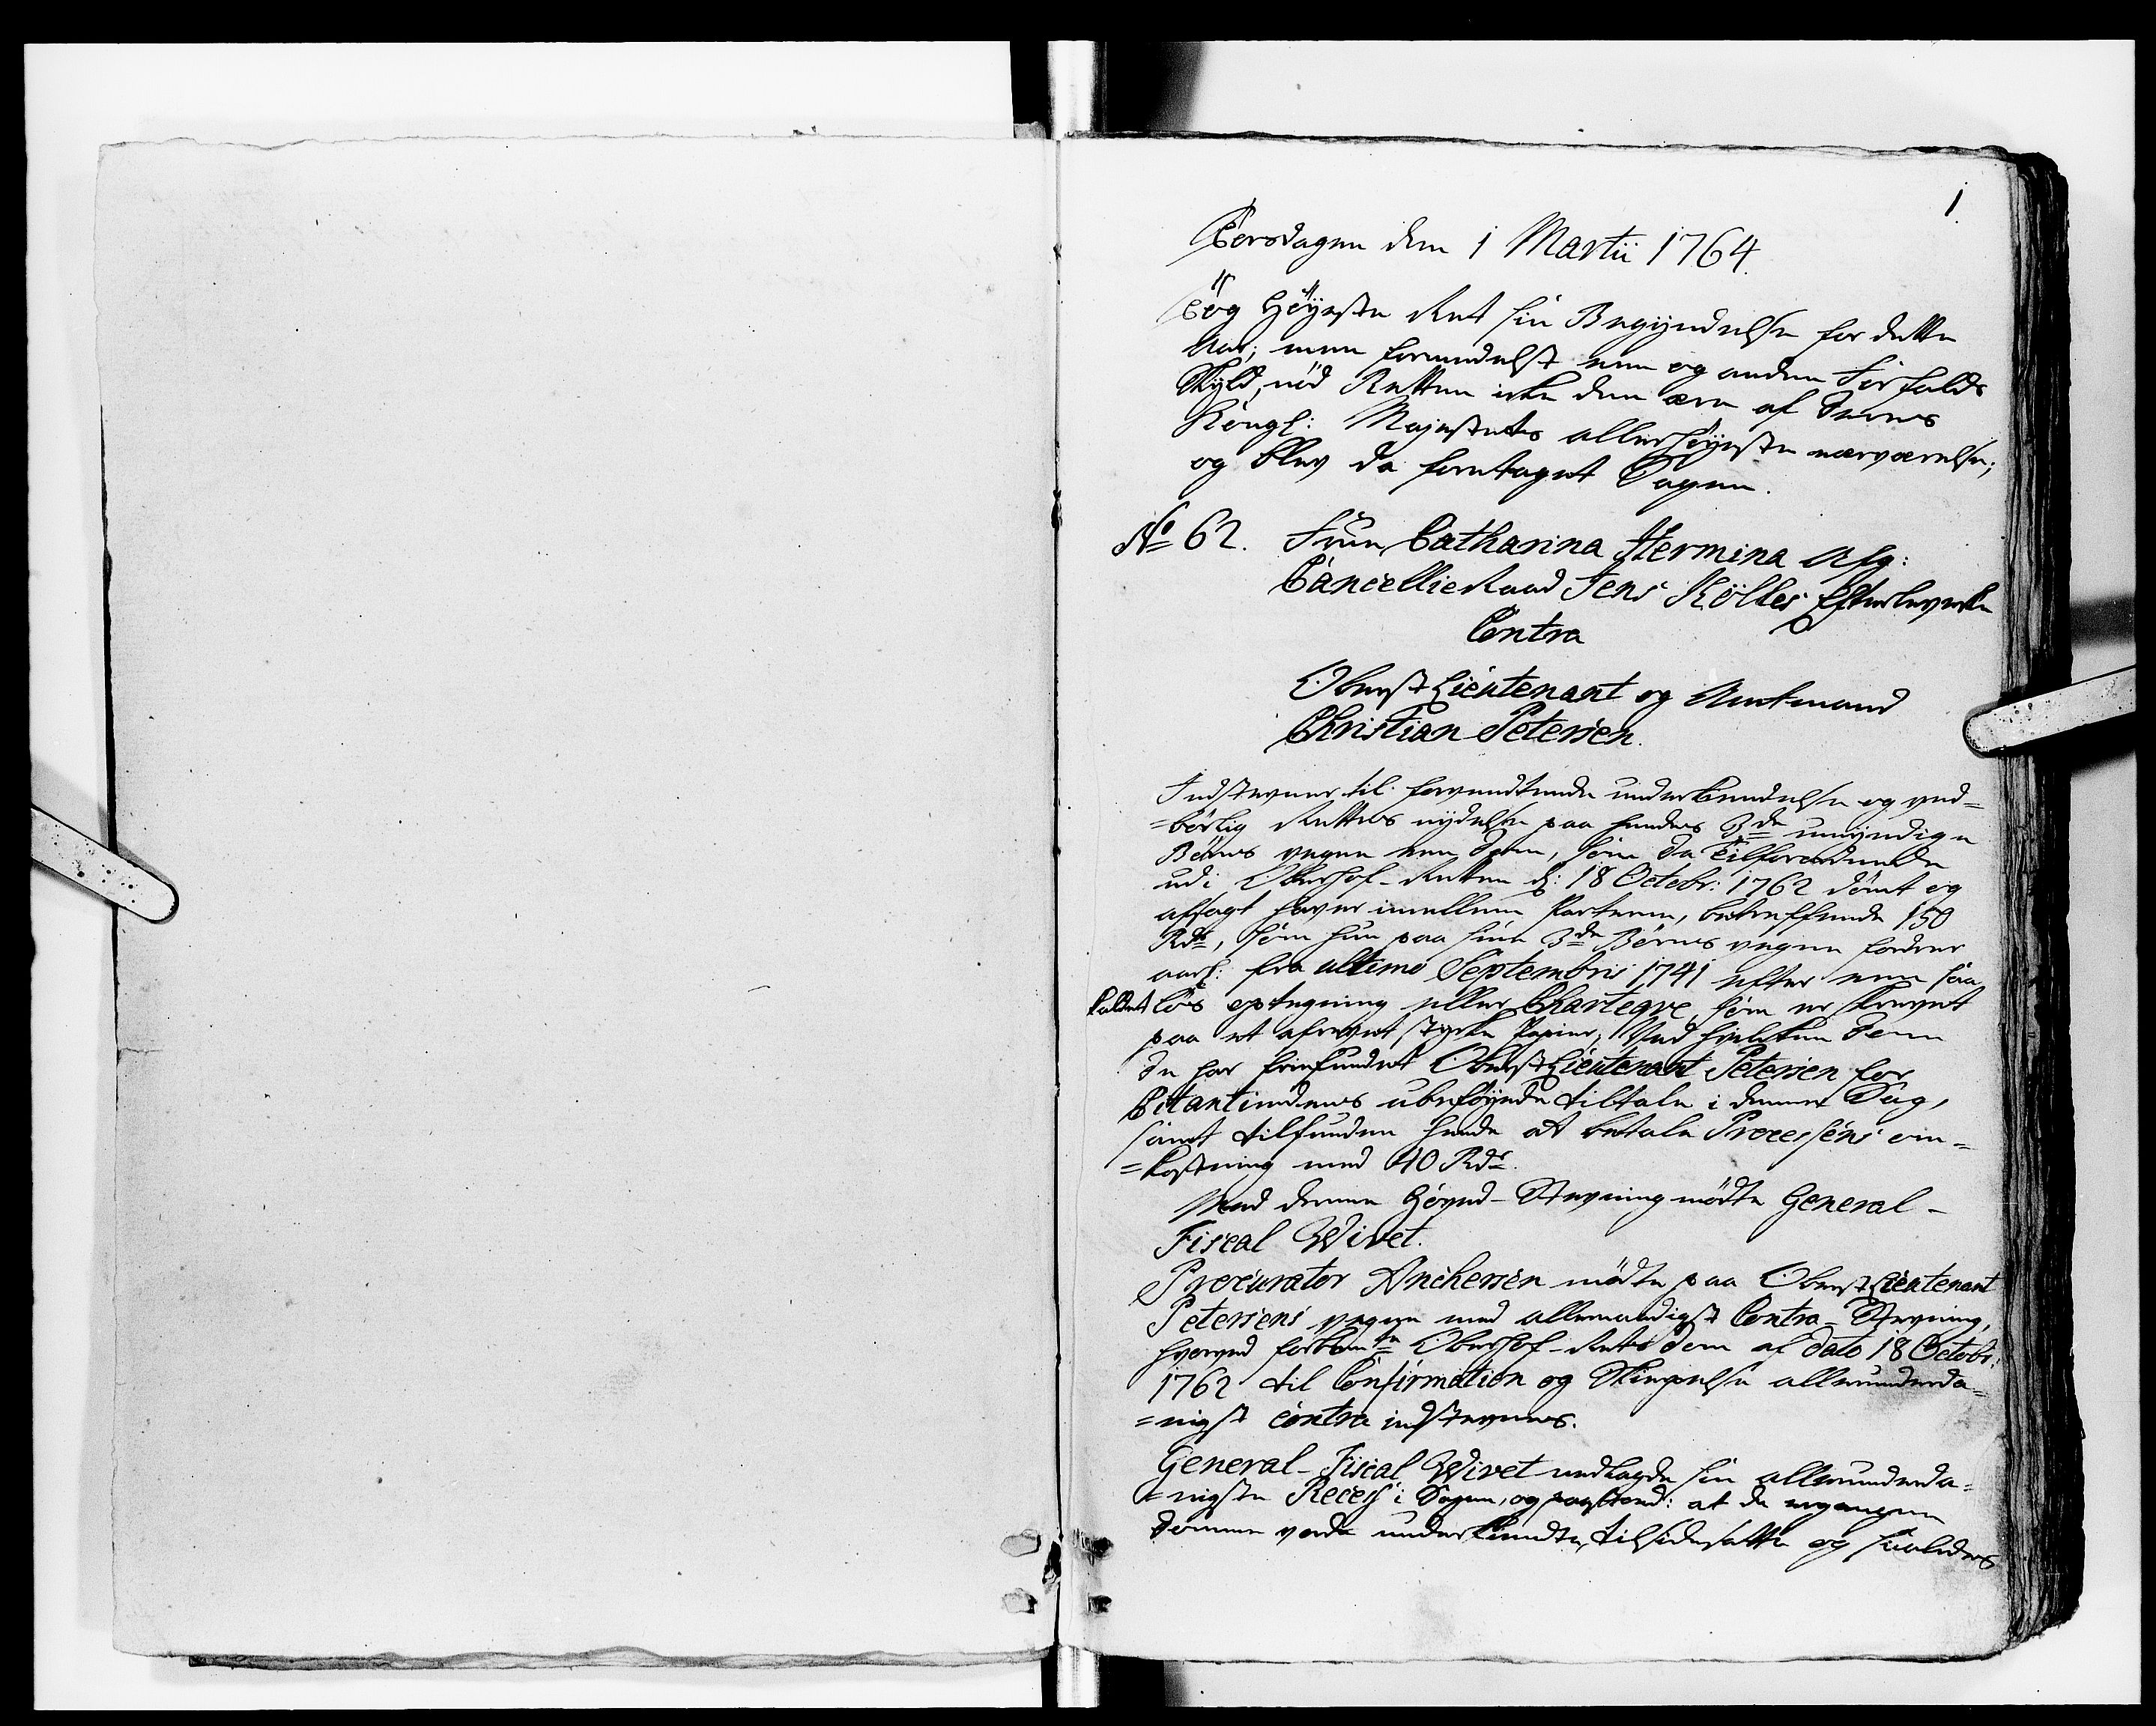 1.
Torsdagen den 1 Martii 1764.
Tog Höyeste Ret sin Begyndelse for dette
Aar; men formedelst een og anden Forfalds
Skyld, nöd Retten icke den ære af Deres
Kongl: Majestæts allerhöyeste nærværelse;
og blev da foretaget Sagen.
No 62. Frue Catharina Hermina Afg:
Cancellie Raad Jens Kölles Efterleverske
Contra
Oberst Lieutenant og Amtmand
Christian Petersen.
Indstevner til forventende underkiendelse og ved-
=börlig Rettes nydelse paa hendes 3de umyndige
Börns vegne een Dom, som da Tilforordnede
udi Oberhof-Retten d: 18 Octobr: 1762 dömt og
afsagt haver imellem Parterne, betreffende 150
Rdr, som hun paa sine 3de Börns vegne fordrer
aarl: fra ultimo Septembris 1741 efter een saa
kaldet løs optegning eller Charteqve, som er skrevet
paa et afrevet stycke Papiir, Ved hvilken Dom
de har friefundet Oberst Lieutenant Petersen for
Citantindens ubeföyede tiltale i denne Sag,
samt tilfunden hende at betale Processens om-
=kostning med 40 Rdr.
Med denne Hoved-Stevning mödte General-
Fiscal Wivet.
Procurator Anchersen mödte paa Oberst Lieutenant
Petersens vegne med allernaadigst Contra-Stevning,
hvorved forbemte Oberhof-Rets Dom af dato 18 Octobr:
1762 til Confirmation og Skiærpelse allerunderda-
=nigst contra indstevnes.
General-Fiscal Wivet nedlagde sin allerunderda-
=nigste Recess i Sagen, og paastod: at de ergangne
Domme vorde underkiendte, tilsidesatte og saaledes